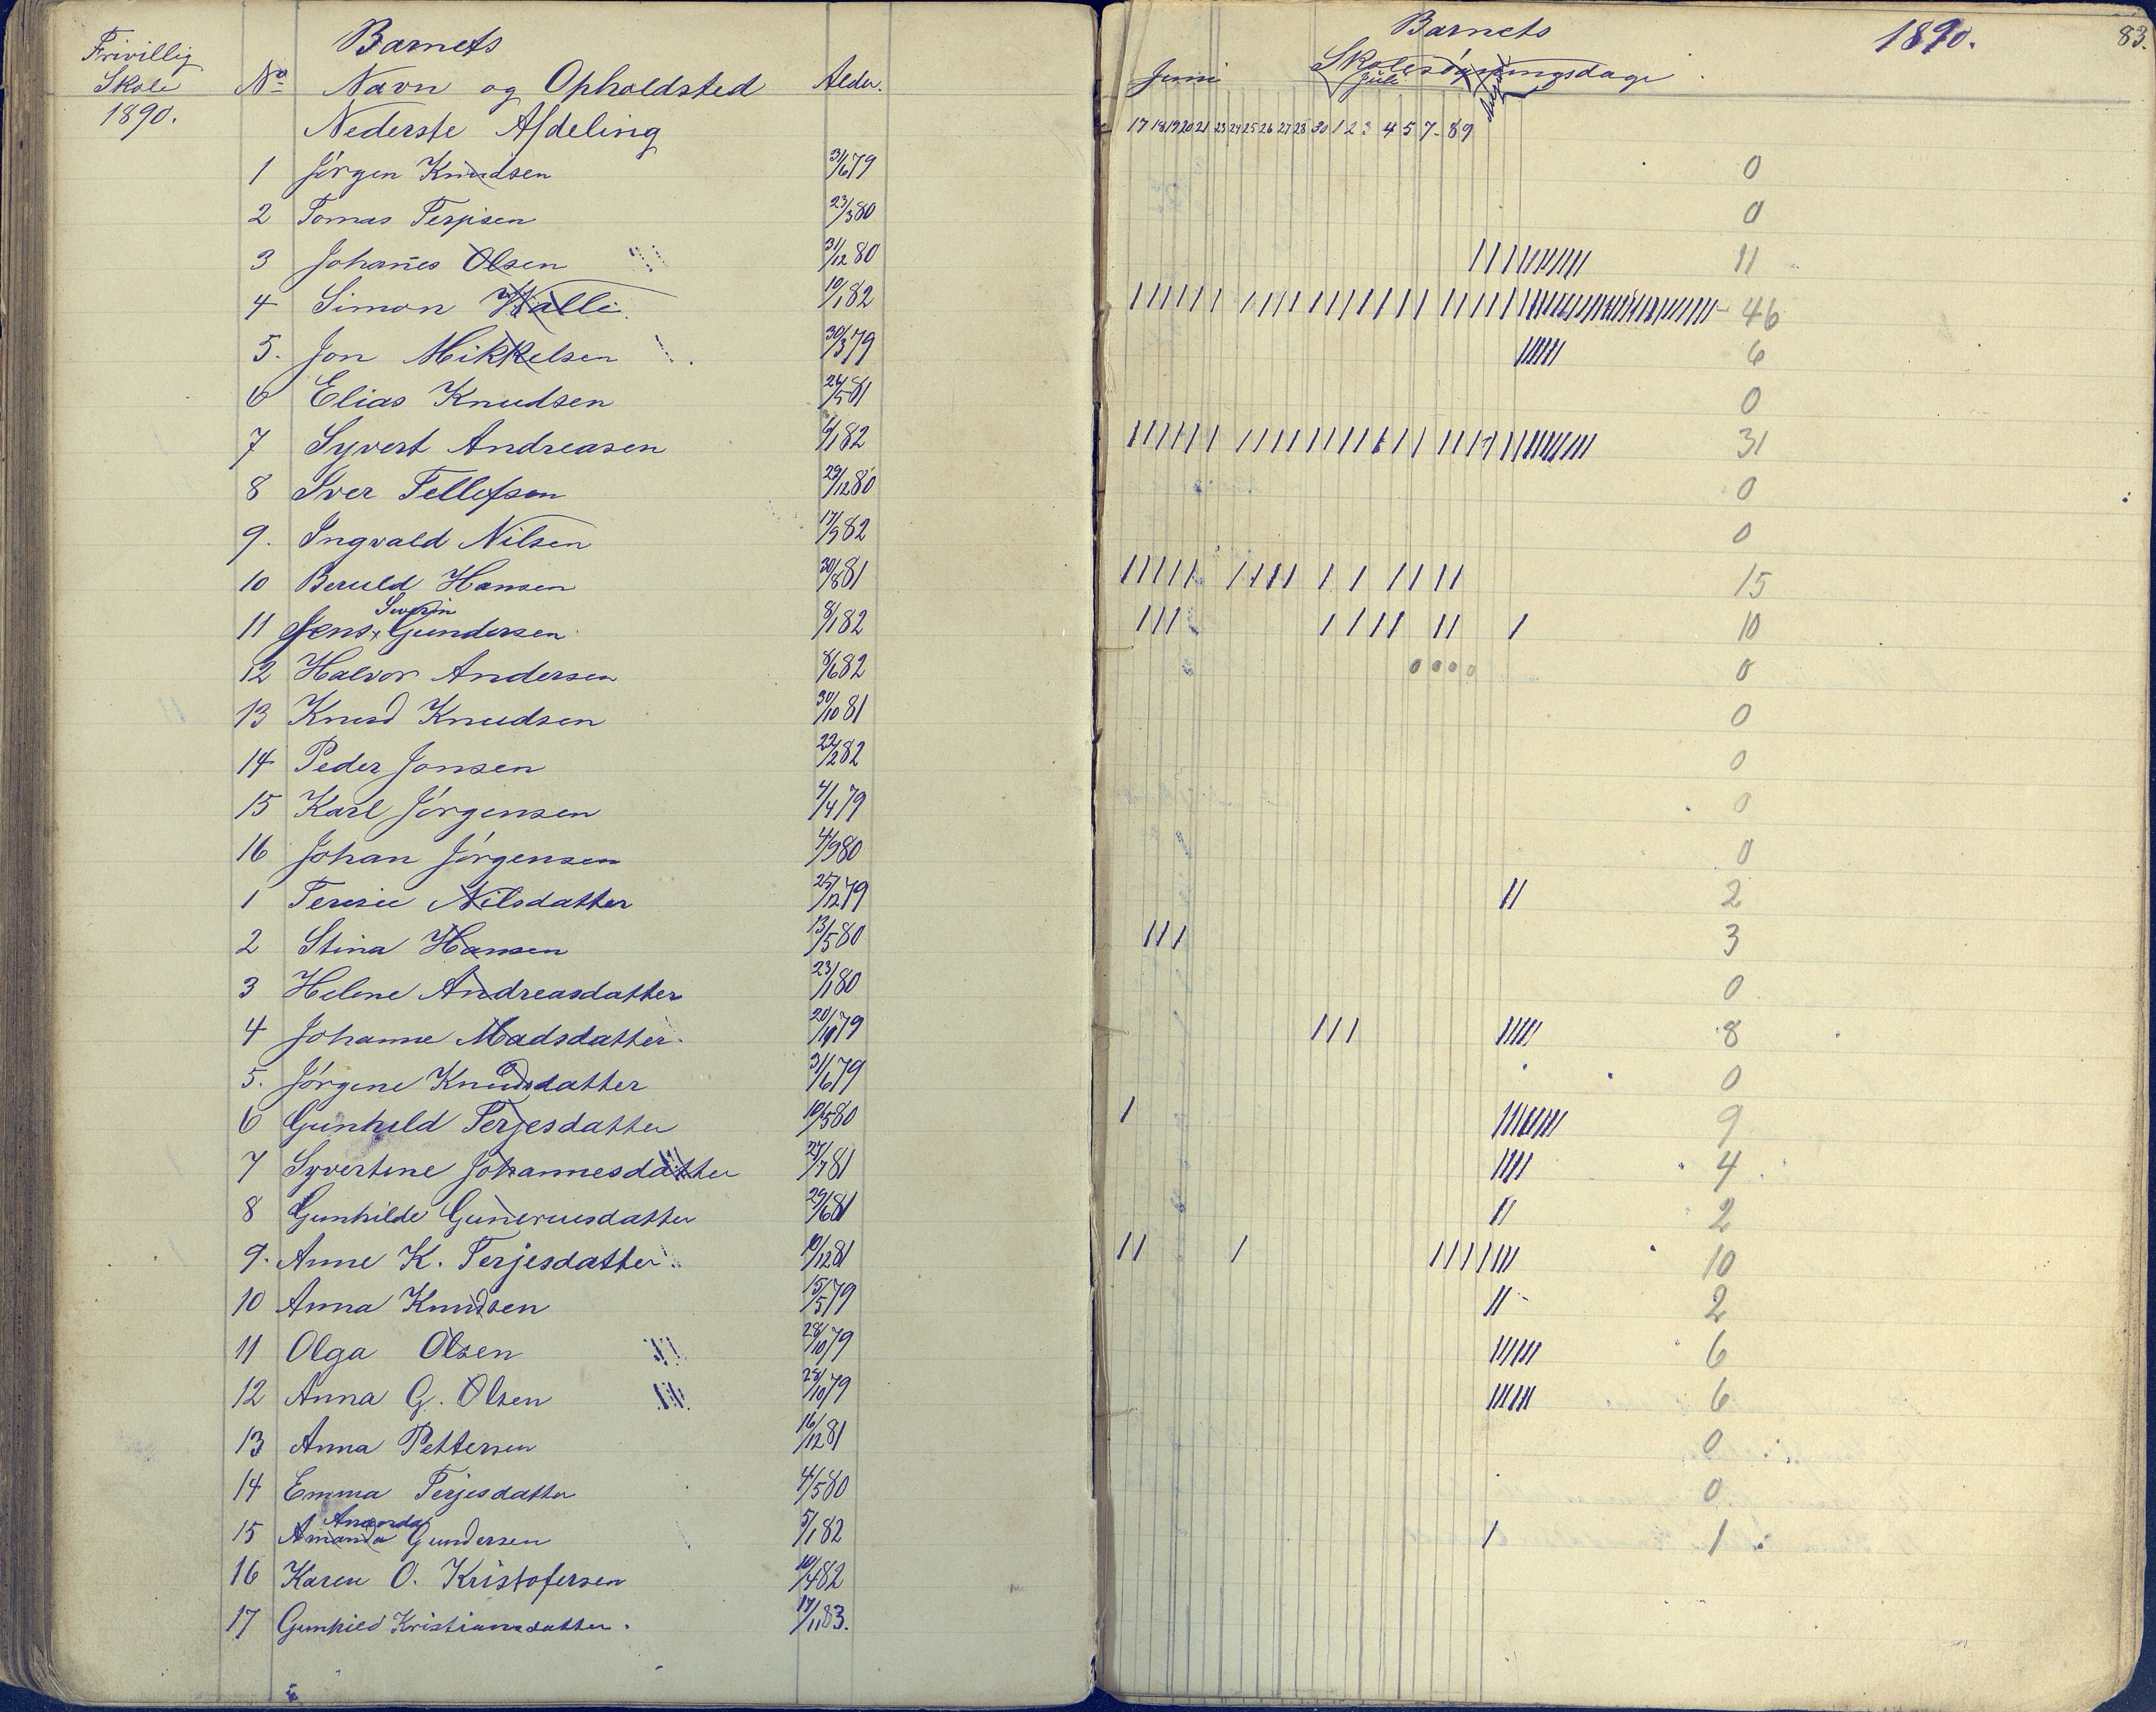 Frivillig
Skole
1890.
Barnets
No Navn og Opholdsted Alder.
Nederste Afdeling
1 Jörgen Knudsen 31/6 79
2 Tomas Terjisen 23/3 80
3 Johan̄es Olsen 31/12 80
4 Simon Walle. 10/1 82
5. Jon Mikkelsen 30/3 79
6 Elias Knudsen 26/5 81
7 Syvert Andreasen 6/1 82
8 Iver Tellefsen 29/12 80
9. Ingvald Nilsen 17/9 82
10 Beruld Hansen 30/8 81
Severin
11 Jens x Gundersen 8/1 82
12 Halvor Andersen 8/6 82
13 Knud Knudsen 30/10 81
14 Peder Jonsen 22/2 82
15 Karl Jörgensen 4/4 79
16 Johan Jörgensen 4/9 80
1 Teresie Nilsdatter 25/12 79
2 Stina Hansen 13/5 80
3 Helene Andreasdatter 23/1 80
4 Johanne Madsdatter 20/10 79
5. Jörgine Knudsdatter 31/6 79
6 Gunhild Terjesdatter 10/5 80
7 Syvertine Johannesdatter 27/7 81
8 Gunhilde Guneriusdatter 29/6 81
9. Anne K. Terjesdatter 10/12 81
10 Anna Knudsen 15/5 79
11 Olga Olsen 28/10 79
12 Anna G. Olsen 28/10 79
13 Anna Pettersen 16/12 81
14 Emma Terjesdatter 4/5 80
Amanda
15 Amanda Gundersen 5/1 82
16 Karen O. Kristofersen 10/4 82
17 Gunhild Kristiansdatter. 17/1 83.
Barnets 1890. 83.
Skolesögningsdage.
Juni Juli
17 18 19 20 21 23 24 25 26 27 28 30 1 2 3 4 5 7 8 9
0
0
11
46
6
0
31
0
0
15
10
0 0 0 0 0
0
0
0
0
2
3
0
8
0
9
4
2
10
2
6
6
0
0
1